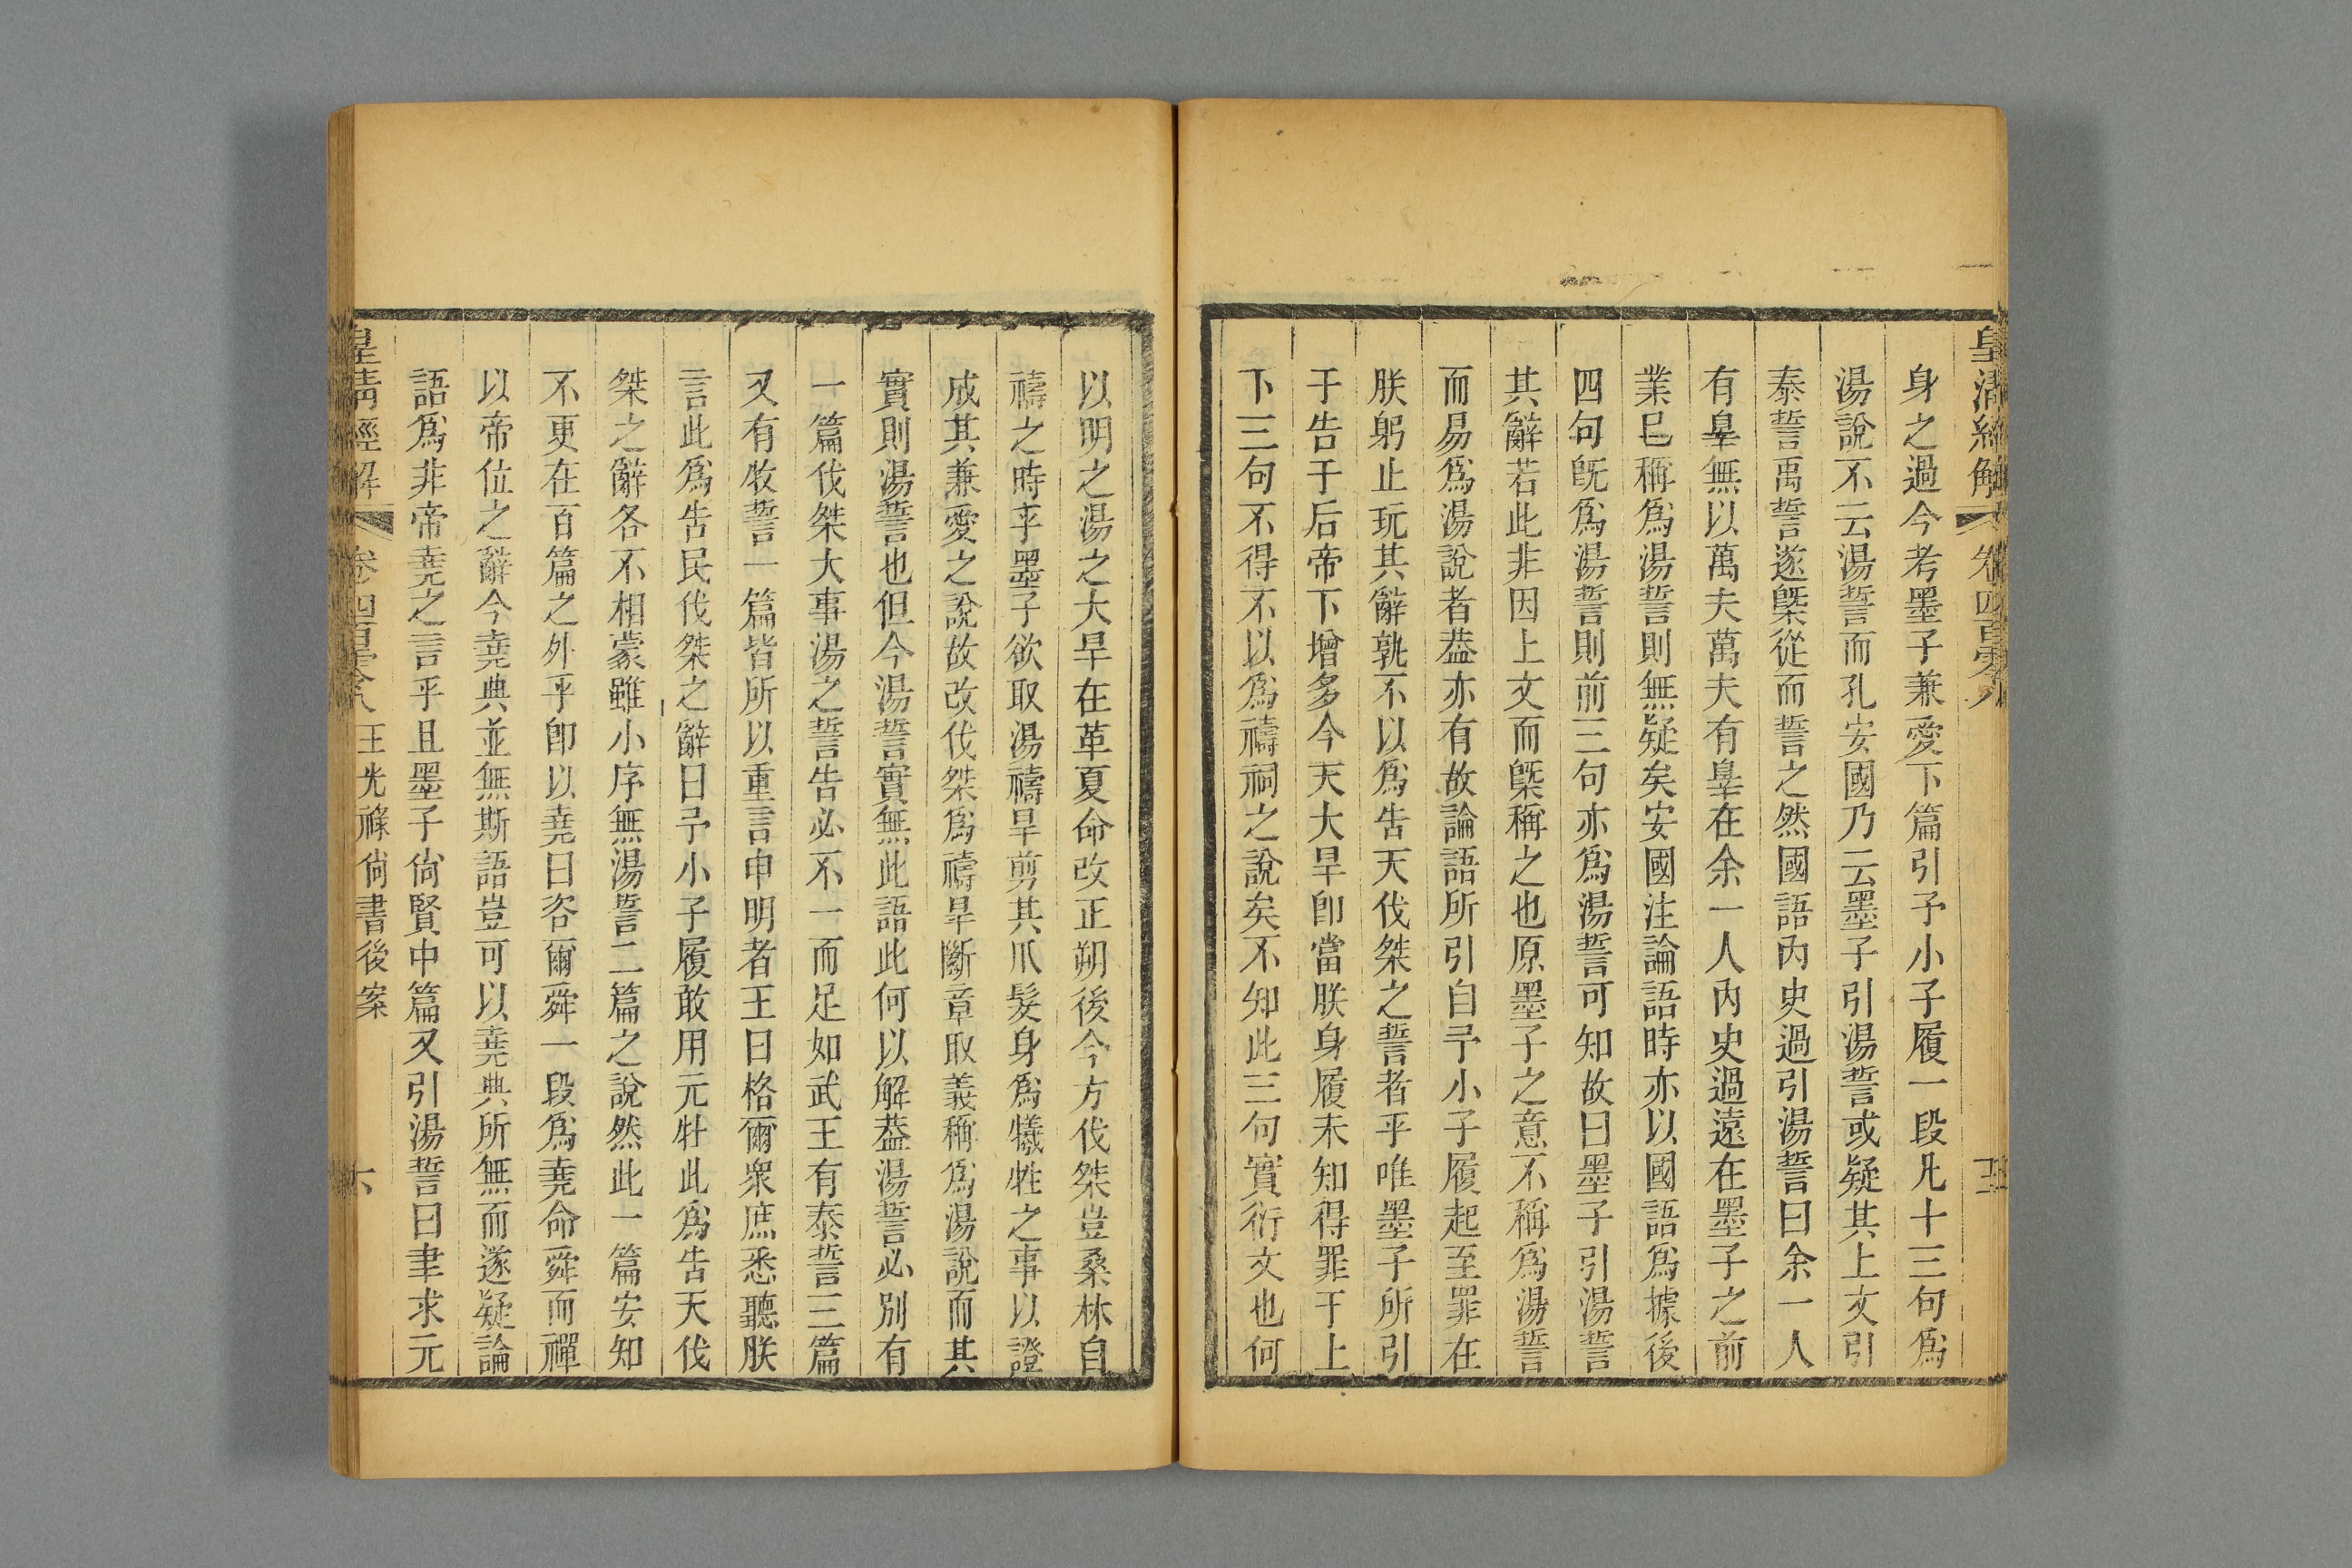 皇清經解 卷四百零八 十五
身之過今考墨子兼愛下篇引予小子履一段凡十三句爲
湯說不云湯誓而孔安國乃云墨子引湯誓或疑其上文引
泰誓禹誓遂槩從而誓之然國語內史過引湯誓曰余一人
有辠無以萬夫萬夫有辠在余一人內史過遠在墨子之前
業巳稱爲湯誓則無疑矣安國注論語時亦以國語爲據後
四句旣爲湯誓則前三句亦爲湯誓可知故曰墨子引湯誓
其辭若此非因上文而槩稱之也原墨子之意不稱爲湯誓
而易爲湯說者葢亦有故論語所引自予小子履起至罪在
朕躬止玩其辭孰不以爲告天伐桀之誓者乎唯墨子所引
于告于后帝下增多今天大旱卽當朕身履未知得罪于上
下三句不得不以爲禱祠之說矣不知此三句實衍文也何
以明之湯之大旱在革夏命改正朔後今方伐桀豈桑林自
禱之時乎墨子欲取湯禱旱剪其爪髮身爲犧牲之事以證
成其兼愛之說故改伐桀爲禱旱斷章取義稱爲湯說而其
實則湯誓也但今湯誓實無此語此何以解葢湯誓必別有
一篇伐桀大事湯之誓告必不一而足如武王有泰誓三篇
又有牧誓一篇皆所以重言申明者王曰格爾衆庶悉聽朕
言此爲告民伐桀之辭曰予小子履敢用元牡此爲告天伐
桀之辭各不相蒙雖小序無湯誓二篇之說然此一篇安知
不更在百篇之外乎卽以堯曰咨爾舜一段爲堯命舜而禪
以帝位之辭今堯典並無斯語豈可以堯典所無而遂疑論
語爲非帝堯之言乎且墨子尙賢中篇又引湯誓曰聿求元
皇清經解 卷四百零八 王光祿尙書後案 六